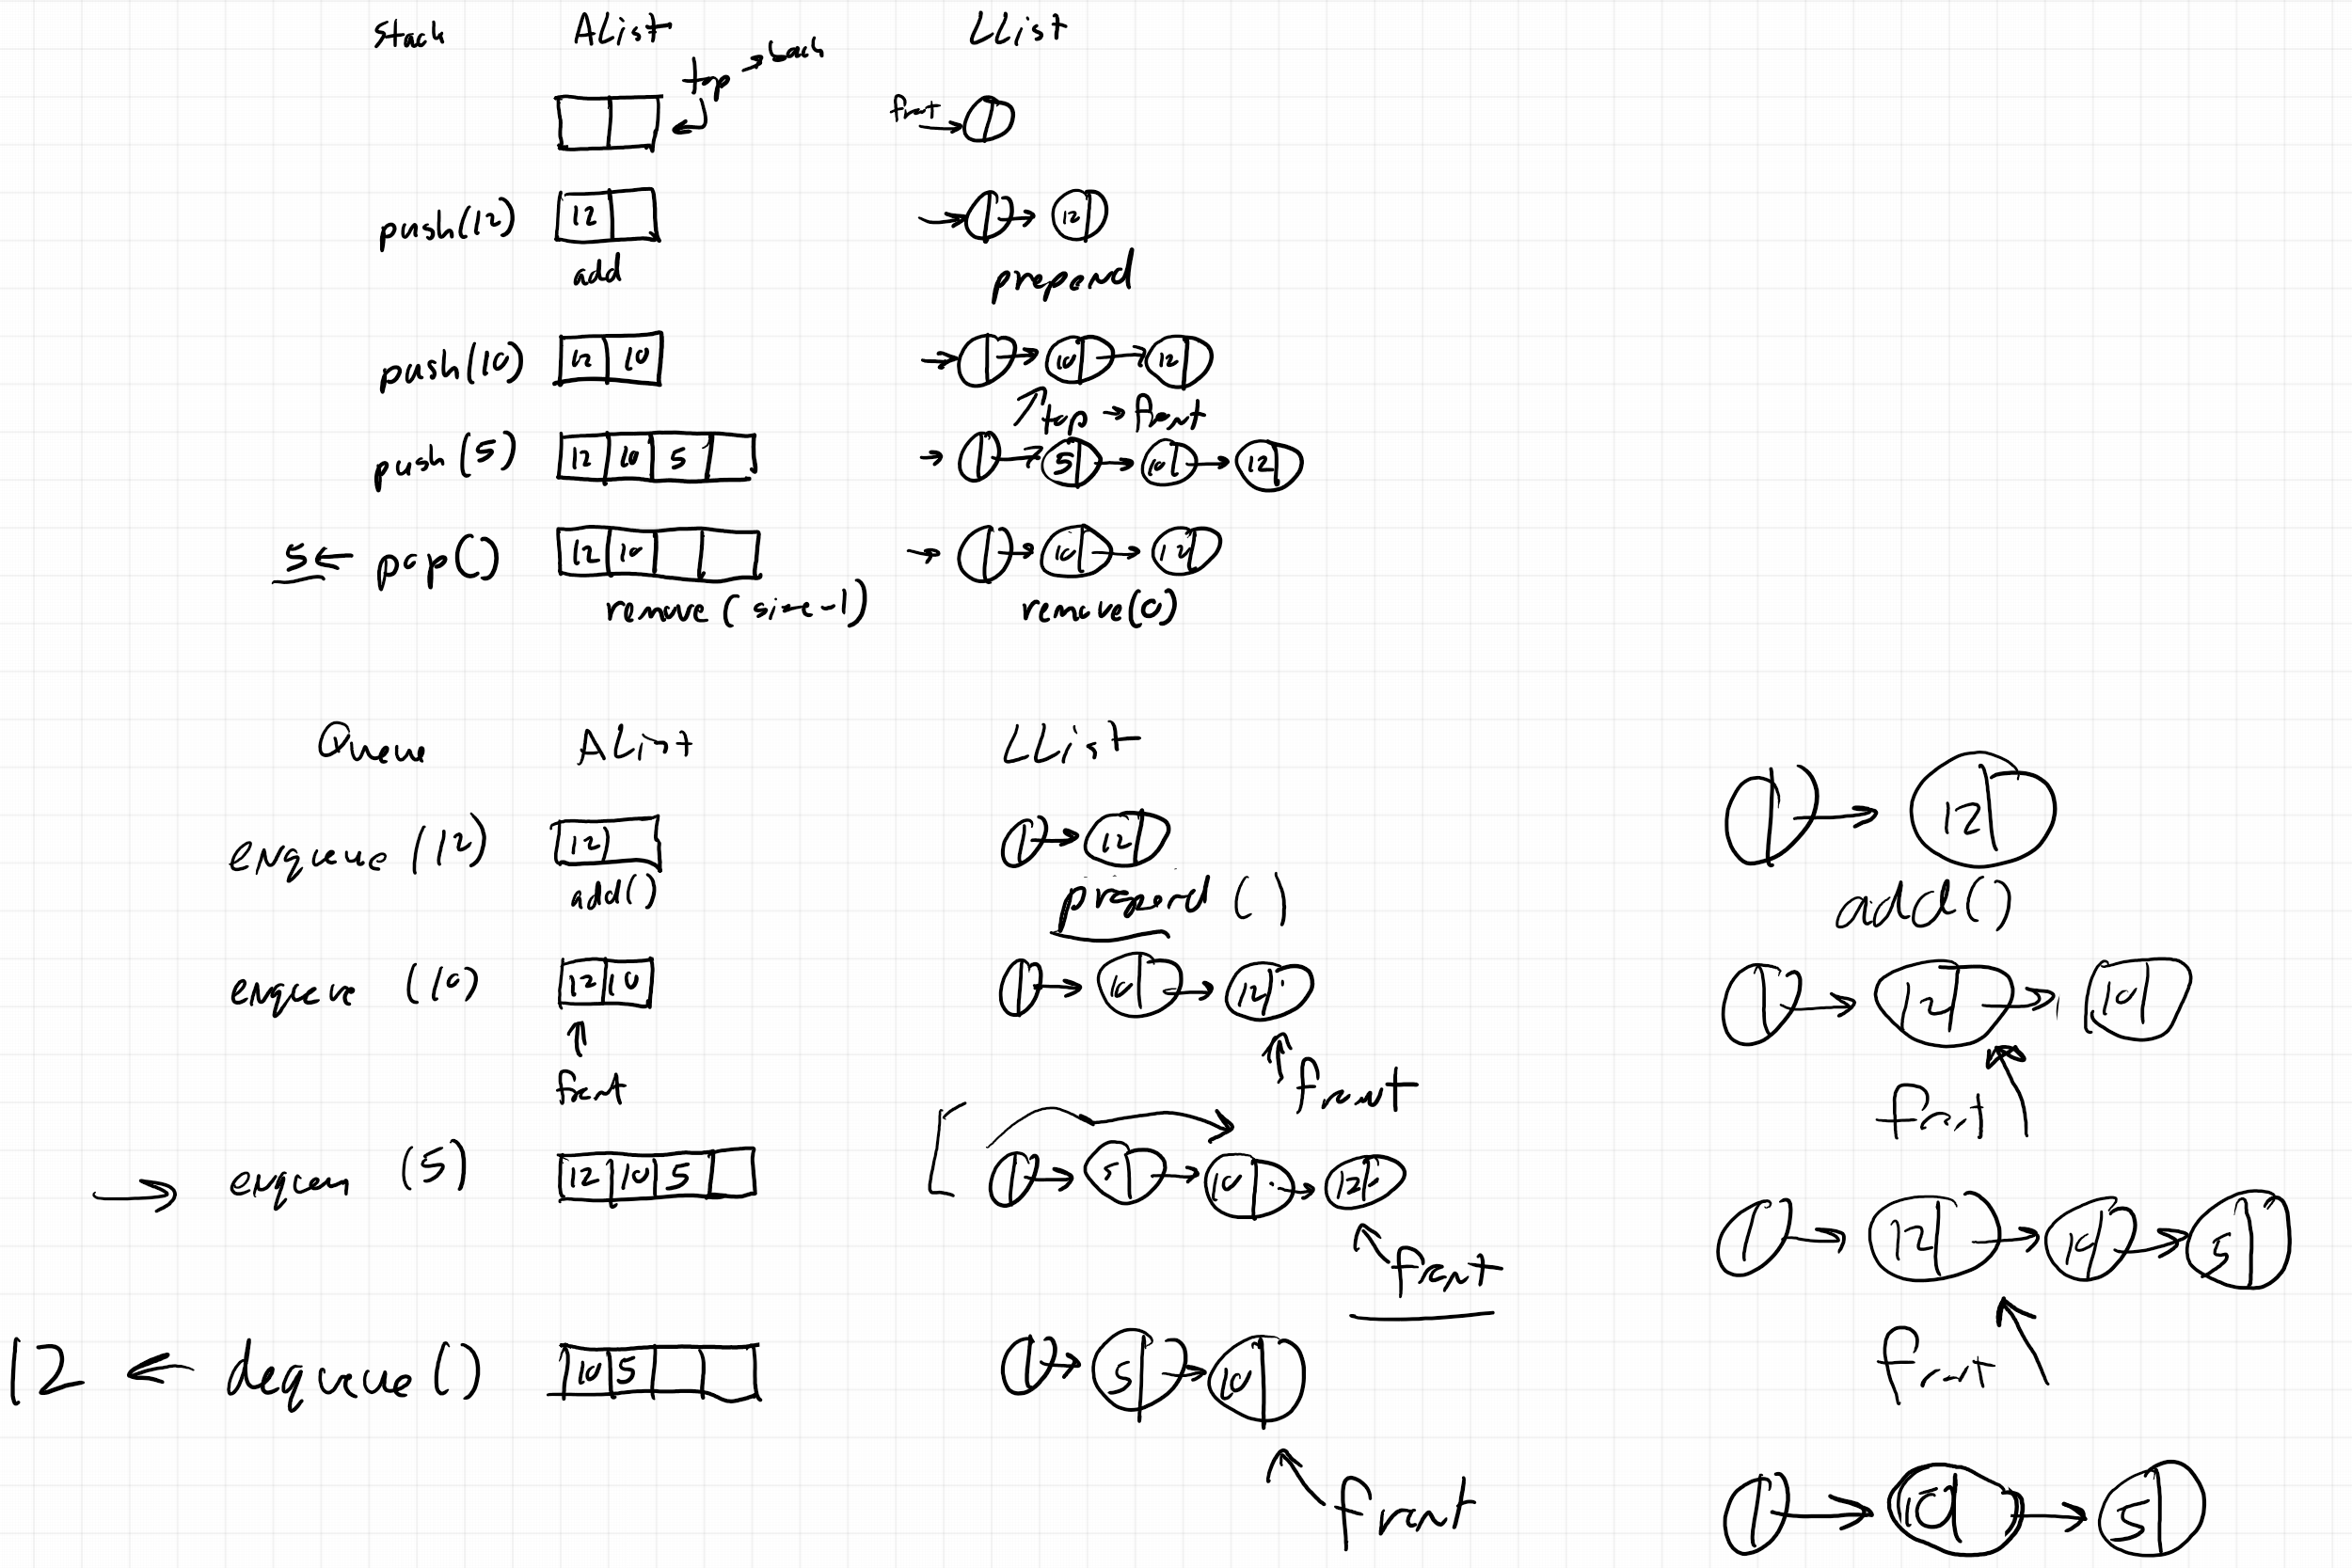 Stack AList LList
top → back
front
push(12) 12 12
add prepend
push(10) 12 10 10 12
top → front
push(5) 12 10 5 5 10 12
5 ← pop() 12 10 10 12
remove(size-1) remove(0)
Queue AList LList
enqueue (12) 12 12 12
add() prepend() add()
enqueue (10) 12 10 10 12 12 10
front front front
enqueue (5) 12 10 5 5 10 12 12 10 5
front front
12 ← dequeue() 10 5 5 10
front 10 5